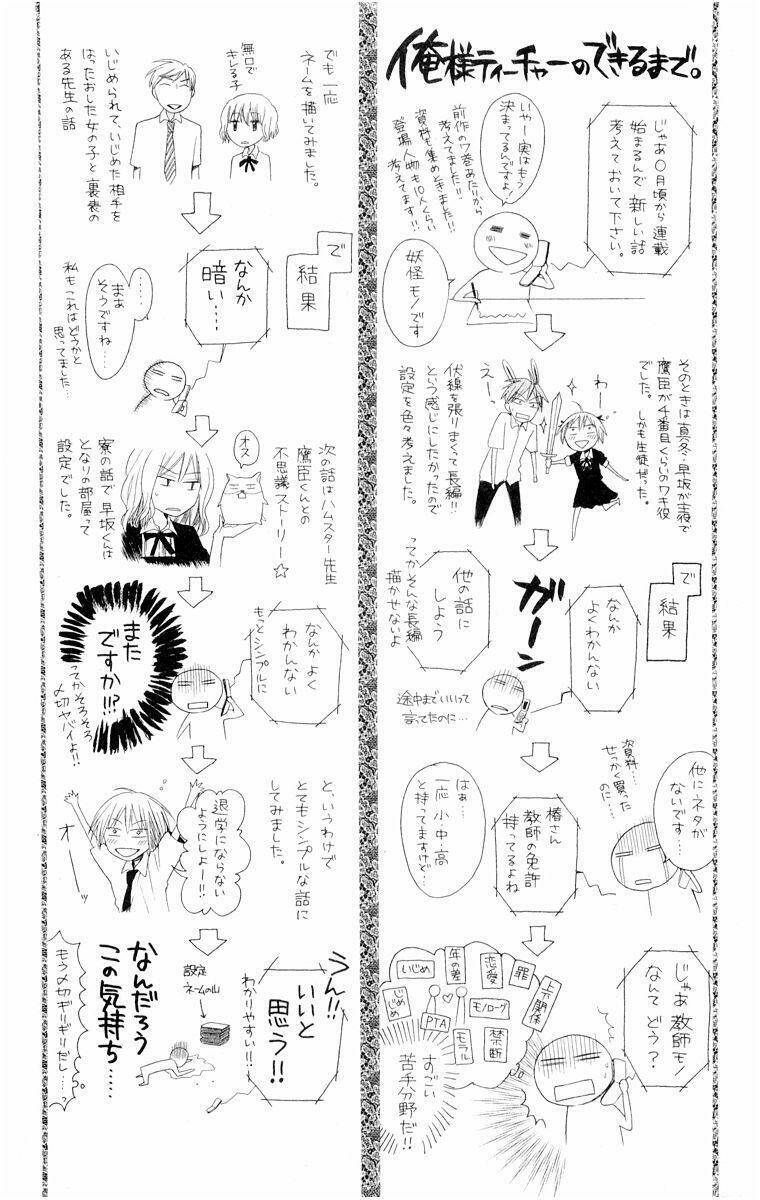 俺様ティーチャーのできるまで。
じゃあ〇月頃から連載
始まるんで新しい話
考えておいて下さい。
いやー実はもう
決まってるんですよ!
前作の7巻あたりから
考えてました!!
資料も集めときました!!
登場人物も10人くらい
考えてます!!
妖怪モノです
そのときは真冬・早坂が主役で
鷹臣が4番目くらいのワキ役
でした。しかも生徒だった。
わー
えー
伏線を張りまくって長編!!
とらう感じにしたかったので
設定を色々考えました。
で
結果
なんか
よくわかんない
ガーン
他の話に
しよう
ってかそんな長編
描かせないよ
途中までいいって
言ってたのに…
資料…
せっかく買った
のに…
他にネタが
ないです…
椿さん
教師の免許
持ってるよね
はぁ…
一応小中高
と持ってますけど…
じゃあ教師モノ
なんてどう?
上下関係
罪
恋愛
年の差
いじめ
モノローグ
じめじめ
PTA
禁断
モラル
すごい
苦手分野だ!!
でも一応
ネームを描いてみました。
無口で
キレる子
いじめられて、いじめた相手を
はったおした女の子と裏表の
ある先生の話
で
結果
なんか
暗い…
……
まぁ
そうですね…
私もこれはどうかと
思ってました…
次の話はハムスター先生
鷹臣くんとの
不思議ストーリー☆
オス
寮の話で早坂くんは
となりの部屋って
設定でした。
なんかよく
わかんない
もっとシンプルに
また
ですか!!?
ってかそろそろ
〆切ヤバイよ!!
と、いうわけで
とてもシンプルな話に
してみました。
退学にならない
ようにしよー!!
オーッ
うん!!
いいと
思う!!
わかりやすい!!
設定
ネームの山
なんだろう
この気持ち……
もう〆切ギリギリだし…?